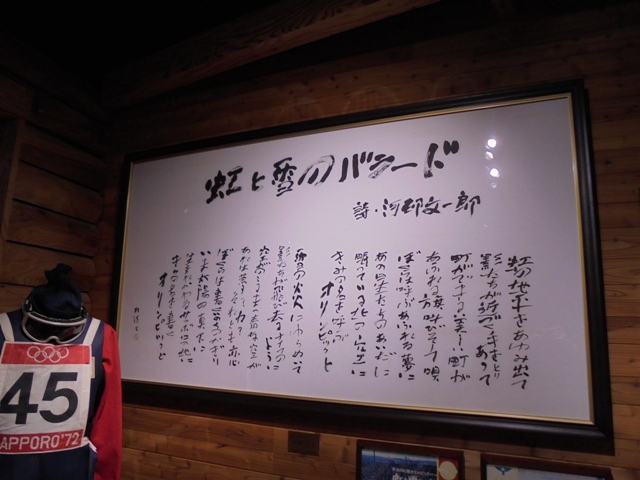 虹と雪のバラード
詩・河邨文一郎
虹の地平をあゆみ出て
影たちが近づく手をとりあって
町ができる美しい町が
あふれる旗叫びそして唄
ぼくらは呼ぶあふれる夢に
あの星たちのあいだに
眠っている北の空に
きみの名を呼ぶ
オリンピックと
雪の炎にゆらめいて
影たちが飛び去るナイフのように
空がのこるまっ青な空が
あれは夢?ちから?それとも恋
ぼくらは書くいのちのかぎり
いま太陽の真下に
生まれかわるサッポロの地に
きみの名を書く
オリンピックと
45
APPORO'72